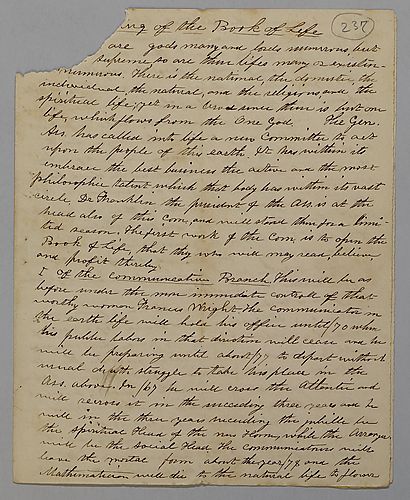 237
ing of the Book of Life
are gods many and lords numerous, but
supreme, so are then lifes many or existen-
numerous. There is the national, the domestic the
individual, the natural, and the religious, and the
spiritual life; yet in a broad sense there is but one
life, which flows from the One God. The Gen
Ass. has called into life a new Committee to act
upon the people of this earth. It has within it
embrace the best business the active and the most
philosophic talent which that body has within its vast
circle. Dr Franklin the president of the Ass. is at the
head also of this Com, and will stand then for a limi-
ted season. The first work of the Com is to open the
Book of Life, that they who will may read, believe
and profit thereby
I Of the Communicative Branch. This will be as
before under the more immediate controle of that
worthy woman Frances Wright. The communicator in
the earth life will hold his office until /70 when
his public labors in that direction will cease and he
will be preparing until about /77 to depart without
usual death struggle to take his place in the
Ass. above. In /67 he will cross the Atlantic and
will recross it in the succeeding three years and he
will in the three years succeeding the jubilee be
the spiritual Head of the new Home, while the Arranger
will be the Social Head the communicator will
leave the mortal form about the year /78 and the
Mathematician will die to the natural life to flower